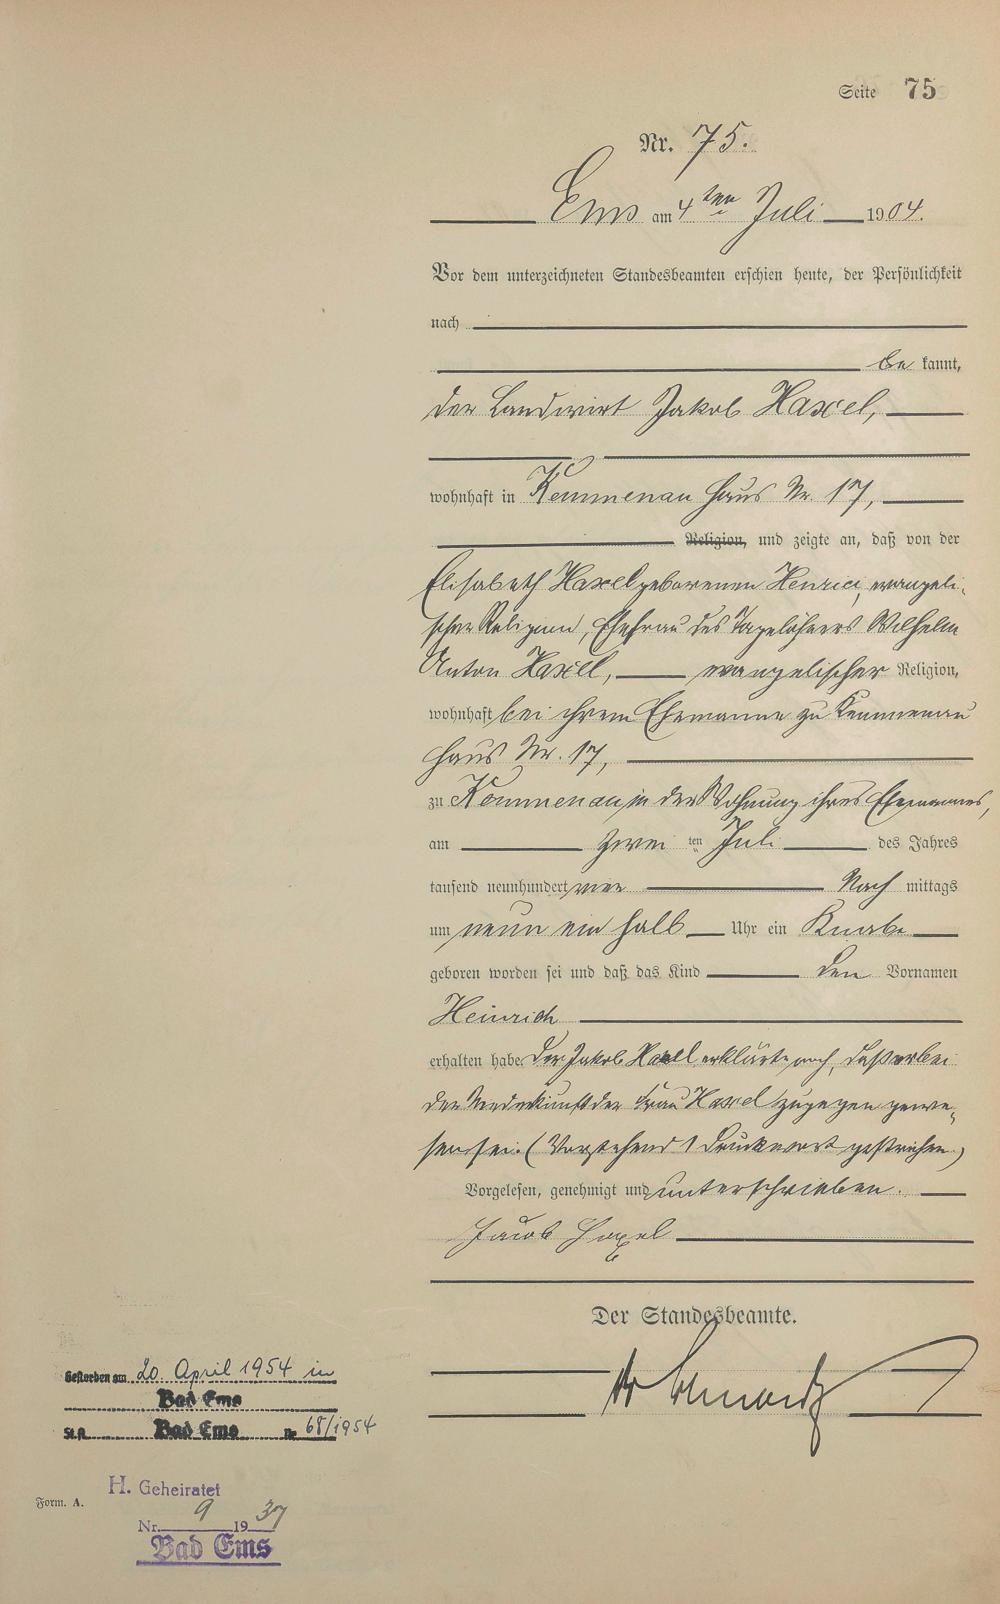 Seite 75
Nr. 75.
Ems am 4ten Juli 1904.
Vor dem unterzeichneten Standesbeamten erschien heute, der Persönlichkeit
nach
be kannt,
der Landwirt Jakob Haxel,
wohnhaft in Kemmenau Haus Nr. 17,
Religion, und zeigte an, daß von der
Elisabeth Haxel geborenen Henrici, evangeli-
scher Religion, Ehefrau des Tagelöhners Wilhelm
Anton Haxel, evangelischer Religion,
wohnhaft bei ihrem Ehemanne zu Kemmenau
Haus Nr. 17,
zu Kemmenau in der Wohnung ihres Ehemannes,
am zwei ten Juli des Jahres
tausend neunhundert vier Nach mittags
um neun ein halb Uhr ein Knabe
geboren worden sei und daß das Kind den Vornamen
Heinrich
erhalten habe. Der Jakob Haxel erklärte noch, daß er bei
der Niederkunft der Frau Haxel zugegen gewe-
sen sei. (Vorstehend 1 Druckwort gestrichen)
Vorgelesen, genehmigt und unterschrieben.
Jacob Haxel
Der Standesbeamte.
Gestorben am 20. April 1954 in
Bad Ems
St.A. Bad Ems Nr 68/1954
H. Geheiratet
Form. A.
Nr. 9 1937
Bad Ems